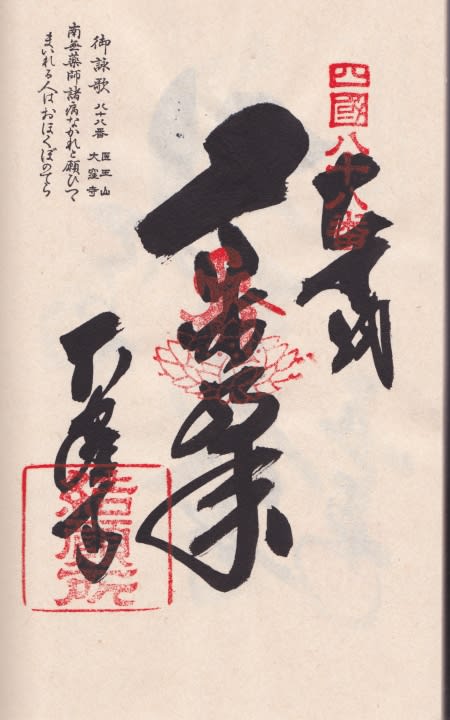 四國八十八番
奉納
大窪寺
結願所
御詠歌 八十八番 医王山 大窪寺
南無薬師諸病なかれと願ひつつ
まいれる人はおほくぼのてら